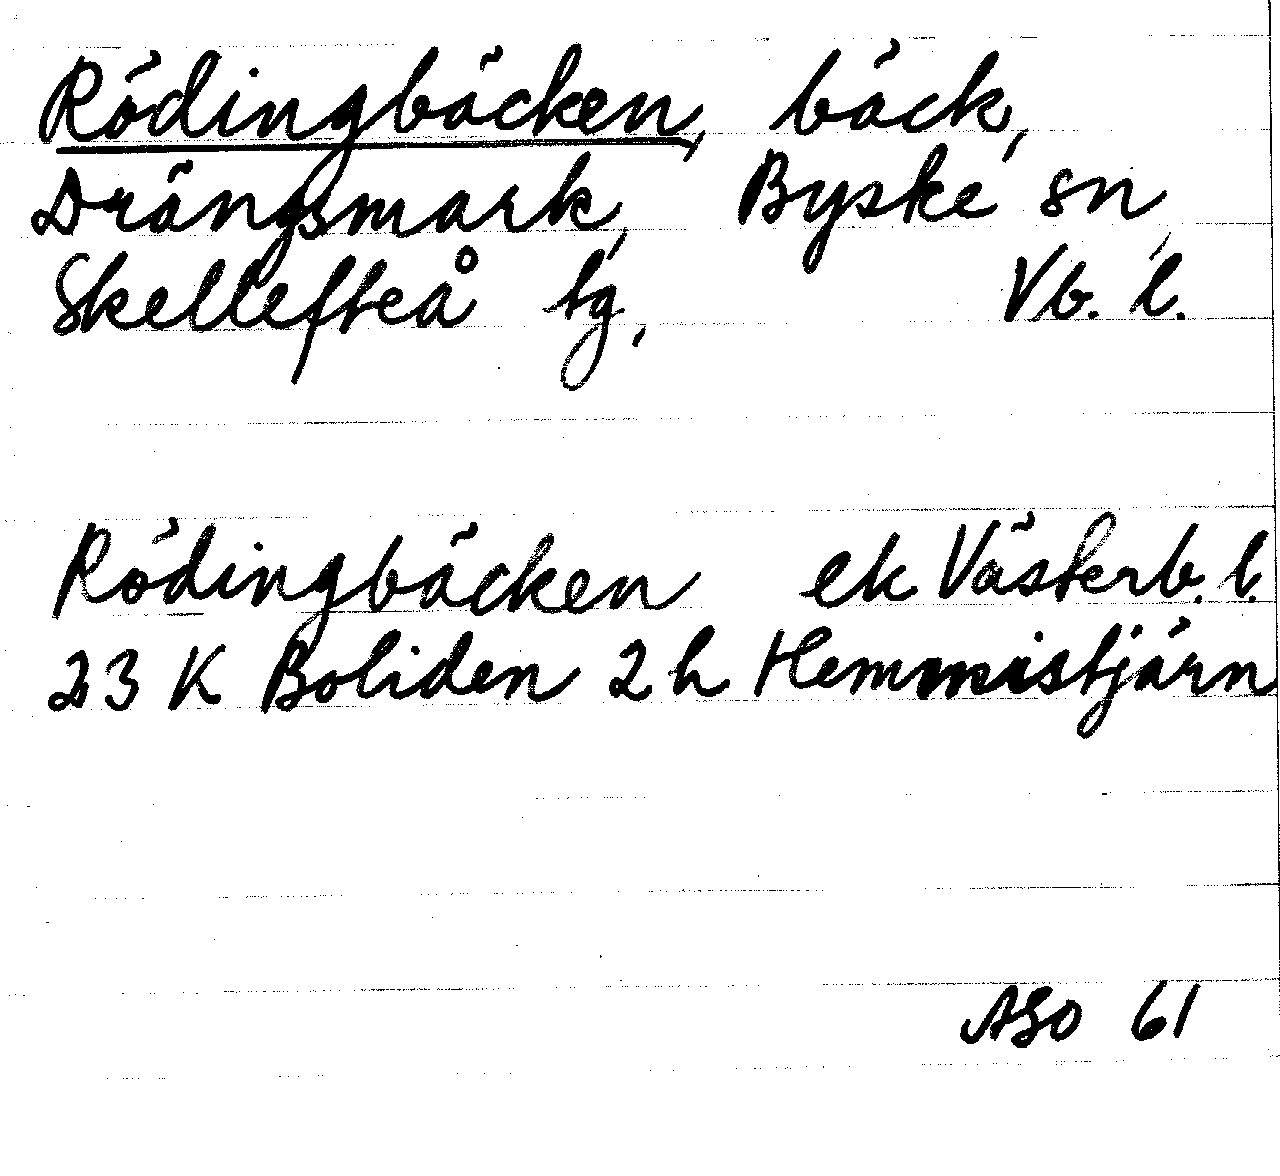 Rödingbäcken, bäck,
Drängsmark, Byske sn,
Skellefteå tg, Vb. l.
Rödingbäcken ek Västerb. l.
23 K Boliden 2 h Hemmistjärn
ASO 61